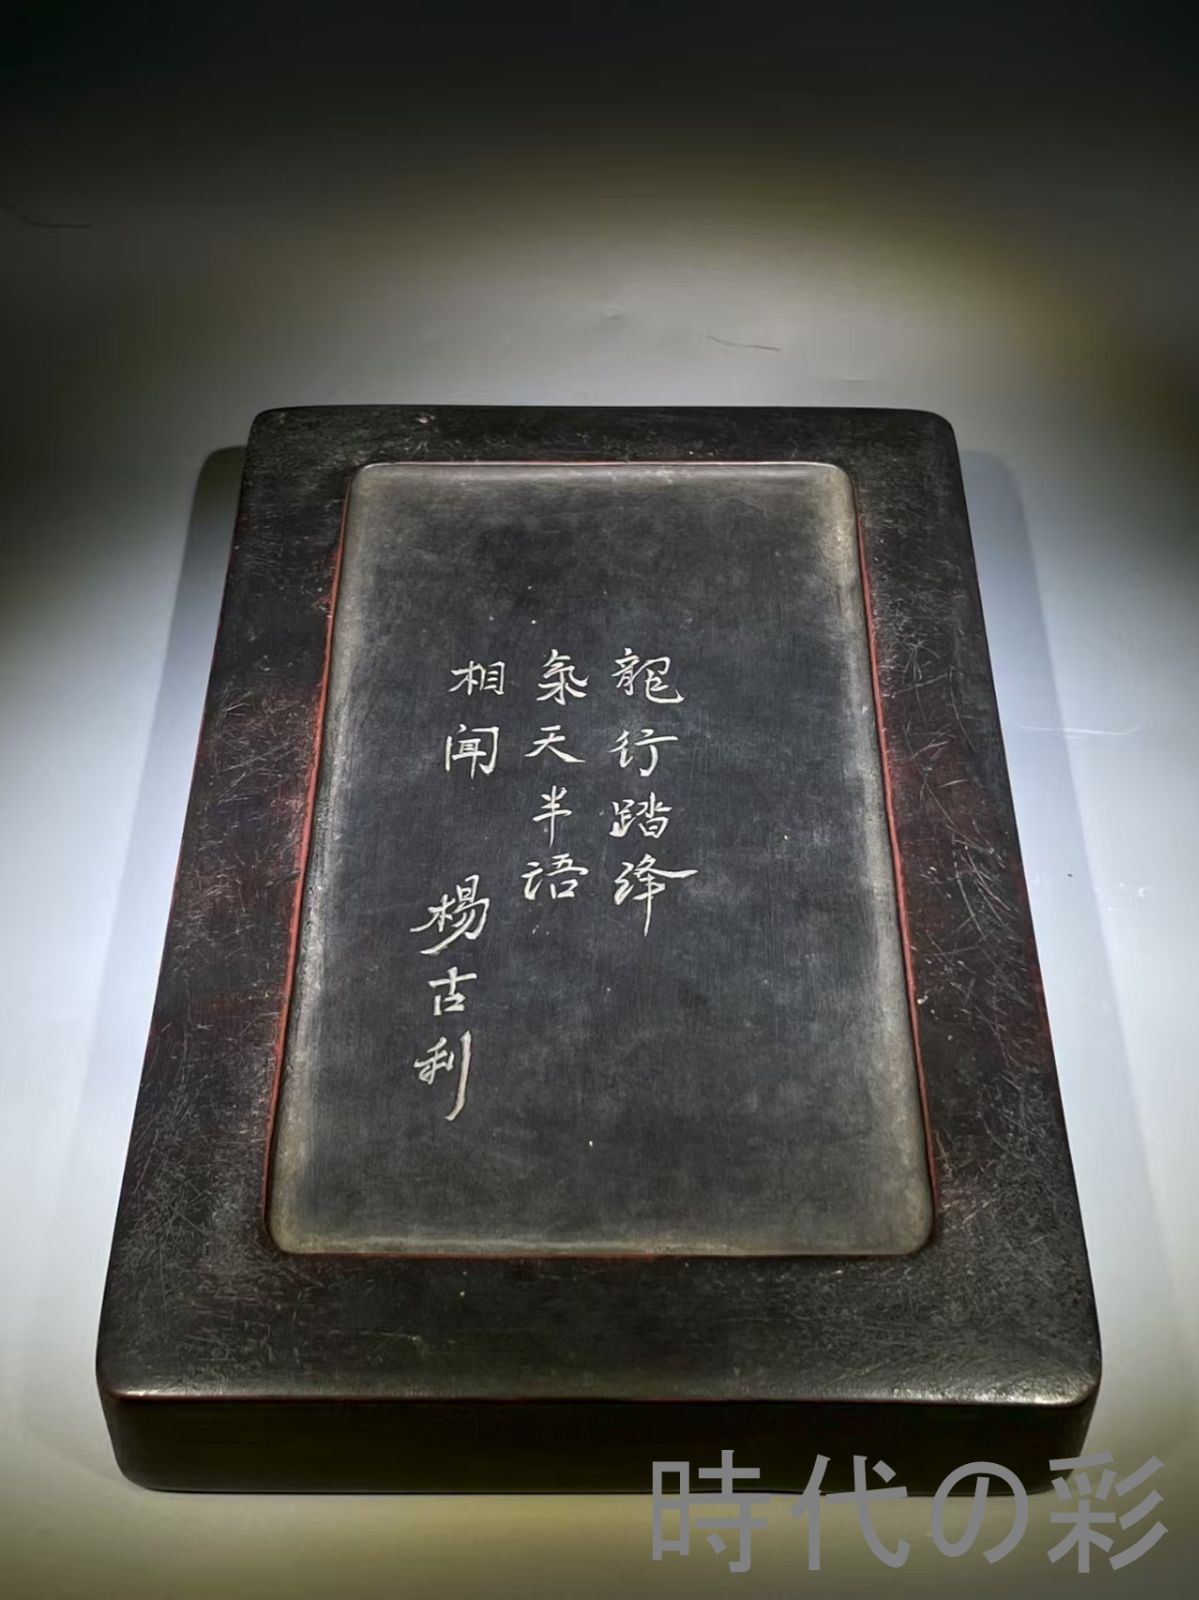 龍行踏绛
氣天半语
相闻
楊古利
時代の彩